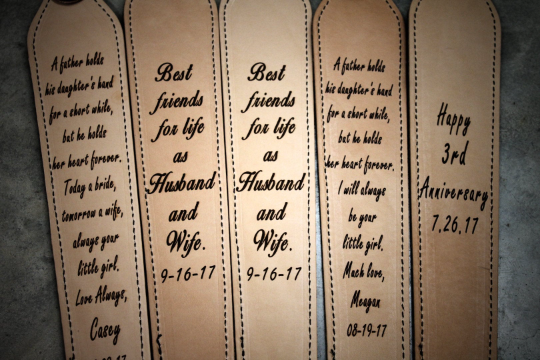 A father holds
his daughter's hand
for a short while,
but he holds
her heart forever.
Today a bride,
tomorrow a wife,
always your
little girl.
Love Always,
Casey
Best
friends
for life
as
Husband
and
Wife.
9-16-17
Best
friends
for life
as
Husband
and
Wife.
9-16-17
A father holds
his daughter's hand
for a short while,
but he holds
her heart forever.
I will always
be your
little girl.
Much love,
Meagan
08-19-17
Happy
3rd
Anniversary
7.26.17